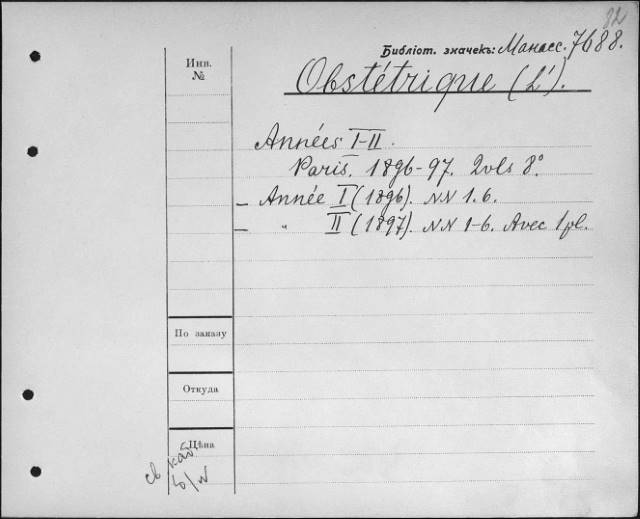 82
Библіот. значекъ: Манасс. 7688.
Инв.
№
Obstétrique (L').
Années I-II.
Paris. 1896-97. 2 vls 8°
– Année I (1896). NN 1.6.
– " II (1897). NN 1-6. Avec 1 pl.
По заказу
Откуда
Цѣна